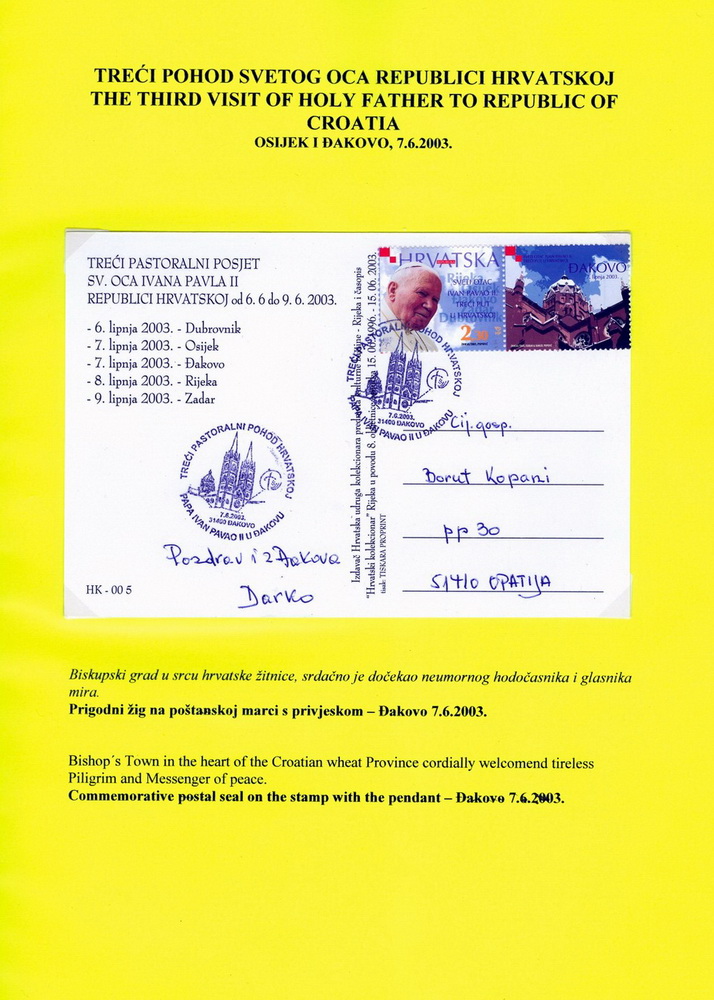 TREĆI POHOD SVETOG OCA REPUBLICI HRVATSKOJ
THE THIRD VISIT OF HOLY FATHER TO REPUBLIC OF
CROATIA
OSIJEK I ĐAKOVO, 7.6.2003.
TREĆI PASTORALNI POSJET
SV. OCA IVANA PAVLA II
REPUBLICI HRVATSKOJ od 6. 6 do 9. 6. 2003.
- 6. lipnja 2003. - Dubrovnik
- 7. lipnja 2003. - Osijek
- 7. lipnja 2003. - Đakovo
- 8. lipnja 2003. - Rijeka
- 9. lipnja 2003. - Zadar
TREĆI PASTORALNI POHOD HRVATSKOJ
7.6.2003.
31400 ĐAKOVO
PAPA IVAN PAVAO II U ĐAKOVU
Pozdrav iz Đakova
Darko
HK - 00 5
Izdavač Hrvatska udruga kolekcionara
"Hrvatski kolekcionar" Rijeka u povodu 8.
15.06.1996. - 15.06. 2003.
tisak: TISKARA PROPRINT
HRVATSKA
Rijeka
SVETI OTAC
IVAN PAVAO II
TREĆI PUT
U HRVATSKOJ
2,30
ĐAKOVO
7. lipnja 2003.
TREĆI PASTORALNI POHOD HRVATSKOJ
7.6.2003.
31400 ĐAKOVO
PAPA IVAN PAVAO II U ĐAKOVU
Cij. gosp.
Borut Kopani
pp 30
51410 OPATIJA
Biskupski grad u srcu hrvatske žitnice, srdačno je dočekao neumornog hodočasnika i glasnika
mira.
Prigodni žig na poštanskoj marci s privjeskom – Đakovo 7.6.2003.
Bishop´s Town in the heart of the Croatian wheat Province cordially welcomend tireless
Piligrim and Messenger of peace.
Commemorative postal seal on the stamp with the pendant – Đakovo 7.6.2003.